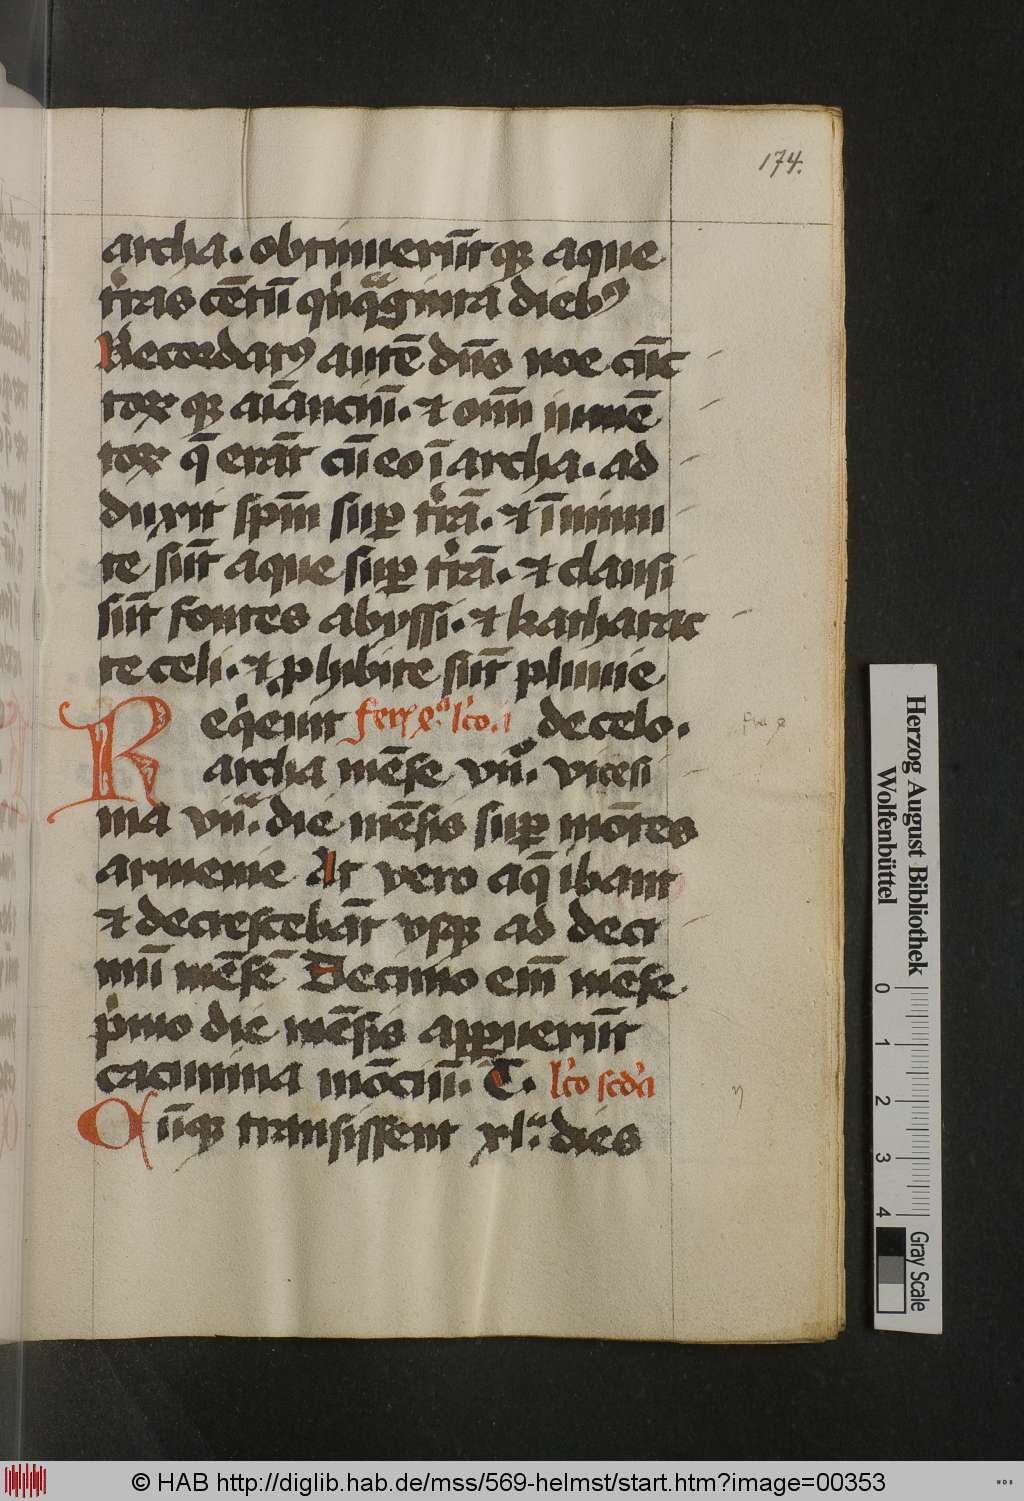 174.
archa. obtinuerūtqꝫ aque
t᷑ras cētū q̇nq̈ginta diebꝰ
Recordatꝰ autē dn̄s noe cūc
toꝝ qꝫ aīanciū. et om̄i iumē
toꝝ q̄ erāt cū eo ī archa. ad
duxit spm̄ suꝑ t᷑rā. et īminu
te sūt aque suꝑ t᷑rā. et clausi
sūt fontes abyssi. et katharac
te celi. et ꝓhibite sūt pluuie
Req̇euit fer᷑ lc̄o. i de celo.
archa mēse vii᷎. vicesi
ma viiᵃ. die mēsis suꝑ mōtes
armenie At vero aq̄ ibant
et decrescebāt vsqꝫ ad deci
mū mēsē Decimo em̄ mēse
p̍mo die mēsis apꝑuerūt
cacumina mōciū. T. lc̄o scd̄a
Cūqꝫ transissent xlᵃ. dies
Herzog August Bibliothek
Wolfenbüttel
0 1 2 3 4
Gray Scale
© HAB http://diglib.hab.de/mss/569-helmst/start.htm?image=00353